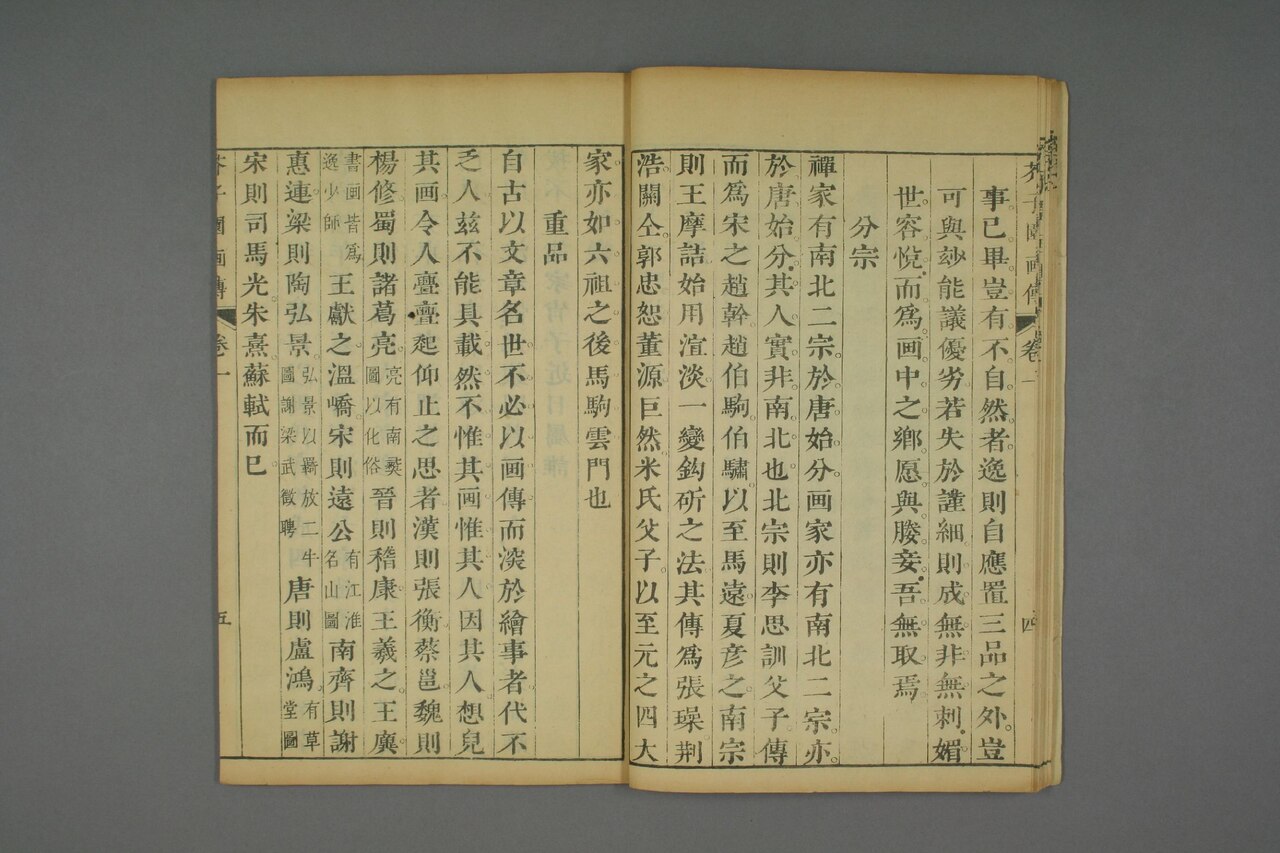 芥子園畫傳 卷一 四
事已畢豈有不自然者逸則自應置三品之外豈
可與玅能議優劣若失於謹細則成無非無刺媚
世容悅而爲画中之鄉愿與媵妾吾無取焉
分宗
禪家有南北二宗於唐始分画家亦有南北二宗亦
於唐始分其人實非南北也北宗則李思訓父子傳
而爲宋之趙幹趙伯駒伯驌以至馬遠夏彦之南宗
則王摩詰始用渲淡一變鈎斫之法其傳爲張璪荆
浩關仝郭忠恕董源巨然米氏父子以至元之四大
家亦如六祖之後馬駒雲門也
重品
自古以文章名世不必以画傳而深於繪事者代不
乏人兹不能具載然不惟其画惟其人因其人想見
其画令人亹亹起仰止之思者漢則張衡蔡邕魏則
楊修蜀則諸葛亮亮有南蠻圖以化俗晉則嵇康王羲之王廙
書画皆爲逸少師王獻之溫嶠宋則遠公有江淮名山圖南齊則謝
惠連梁則陶弘景弘景以羇放二牛圖謝梁武徵聘唐則盧鴻有草堂圖
宋則司馬光朱熹蘇軾而已
芥子園画傳 卷一 五